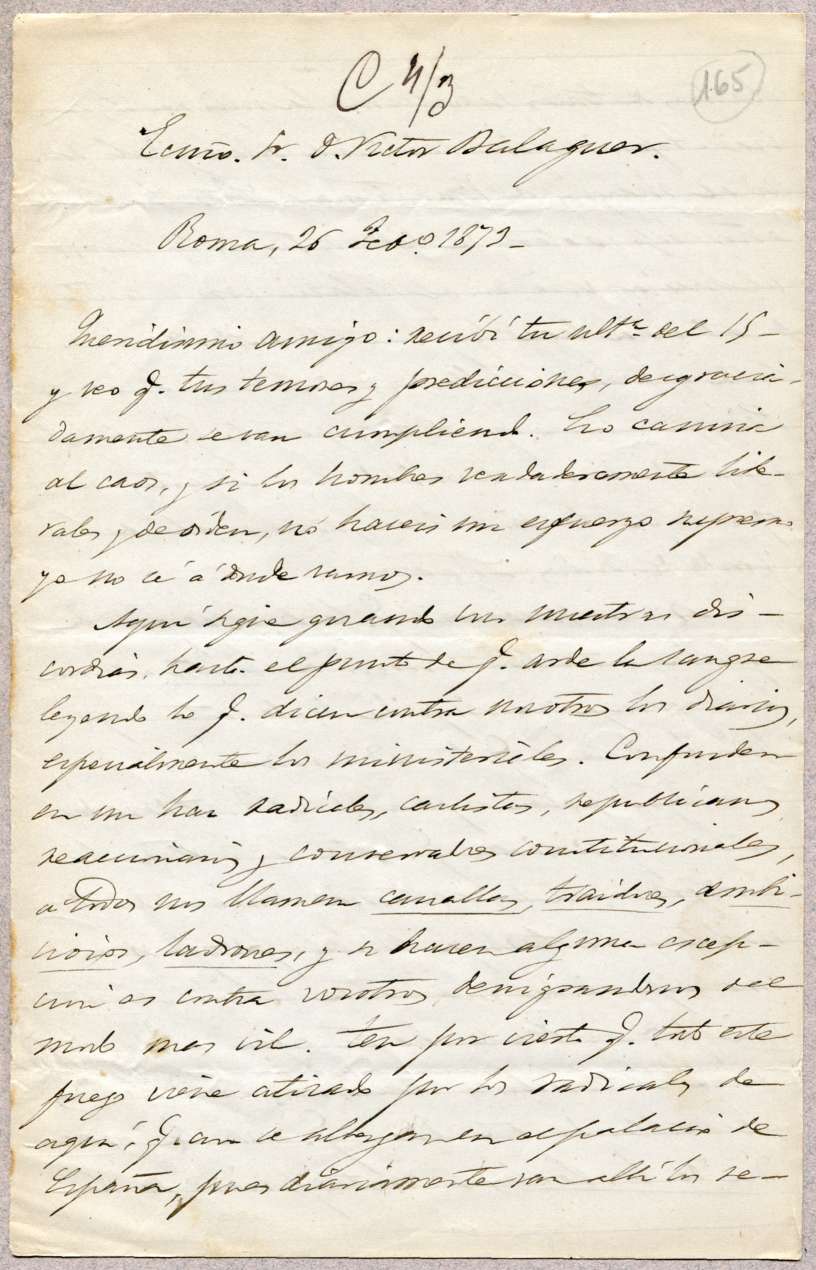 C 4/3
165
Ecmo. Sr. D. Victor Balaguer.
Roma, 26 Feb.o 1873_
Queridisimo amigo: recibí tu ult.a del 15_
y veo q. tus temores y predicciones, desgracia-
damente se van cumpliendo. Eso camina
al caos, y si los hombres verdaderamente libe-
rales y de orden, no haceis un esfuerzo supremo
yo no sé á donde vamos.
Aquí sigue gozando con nuestras dis-
cordias, hasta el punto de q. arde la sangre
leyendo lo q. dicen contra nosotros los diarios,
especialmente los ministeriales. Confunden
en un haz radicales, carlistas, republicanos
reaccionarios y conservadores constitucionales,
a todos nos llaman canallas, traidores, ambi-
ciosos, ladrones, y si hacen alguna escep-
cion es contra vosotros denigrandoos del
modo mas vil. Ten por cierto q. todo este
fuego viene atizado por los radicales de
aquí, q. aun se albergan en el palacio de
España, pues diariamente van allí los re-